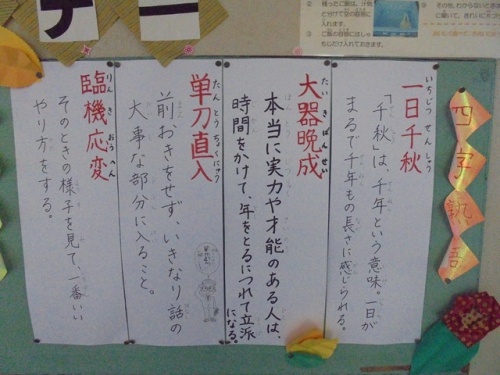 四字熟語
一日千秋
いちじつせんしゅう
「千秋」は、千年という意味。一日が
まるで千年もの長さに感じられる。
大器晩成
たいきばんせい
本当に実力や才能のある人は、
時間をかけて、年をとるにつれて立派
になる。
単刀直入
たんとうちょくにゅう
前おきをせず、いきなり話の
大事な部分に入ること。
臨機応変
りんきおうへん
そのときの様子を見て、一番いい
やり方をする。